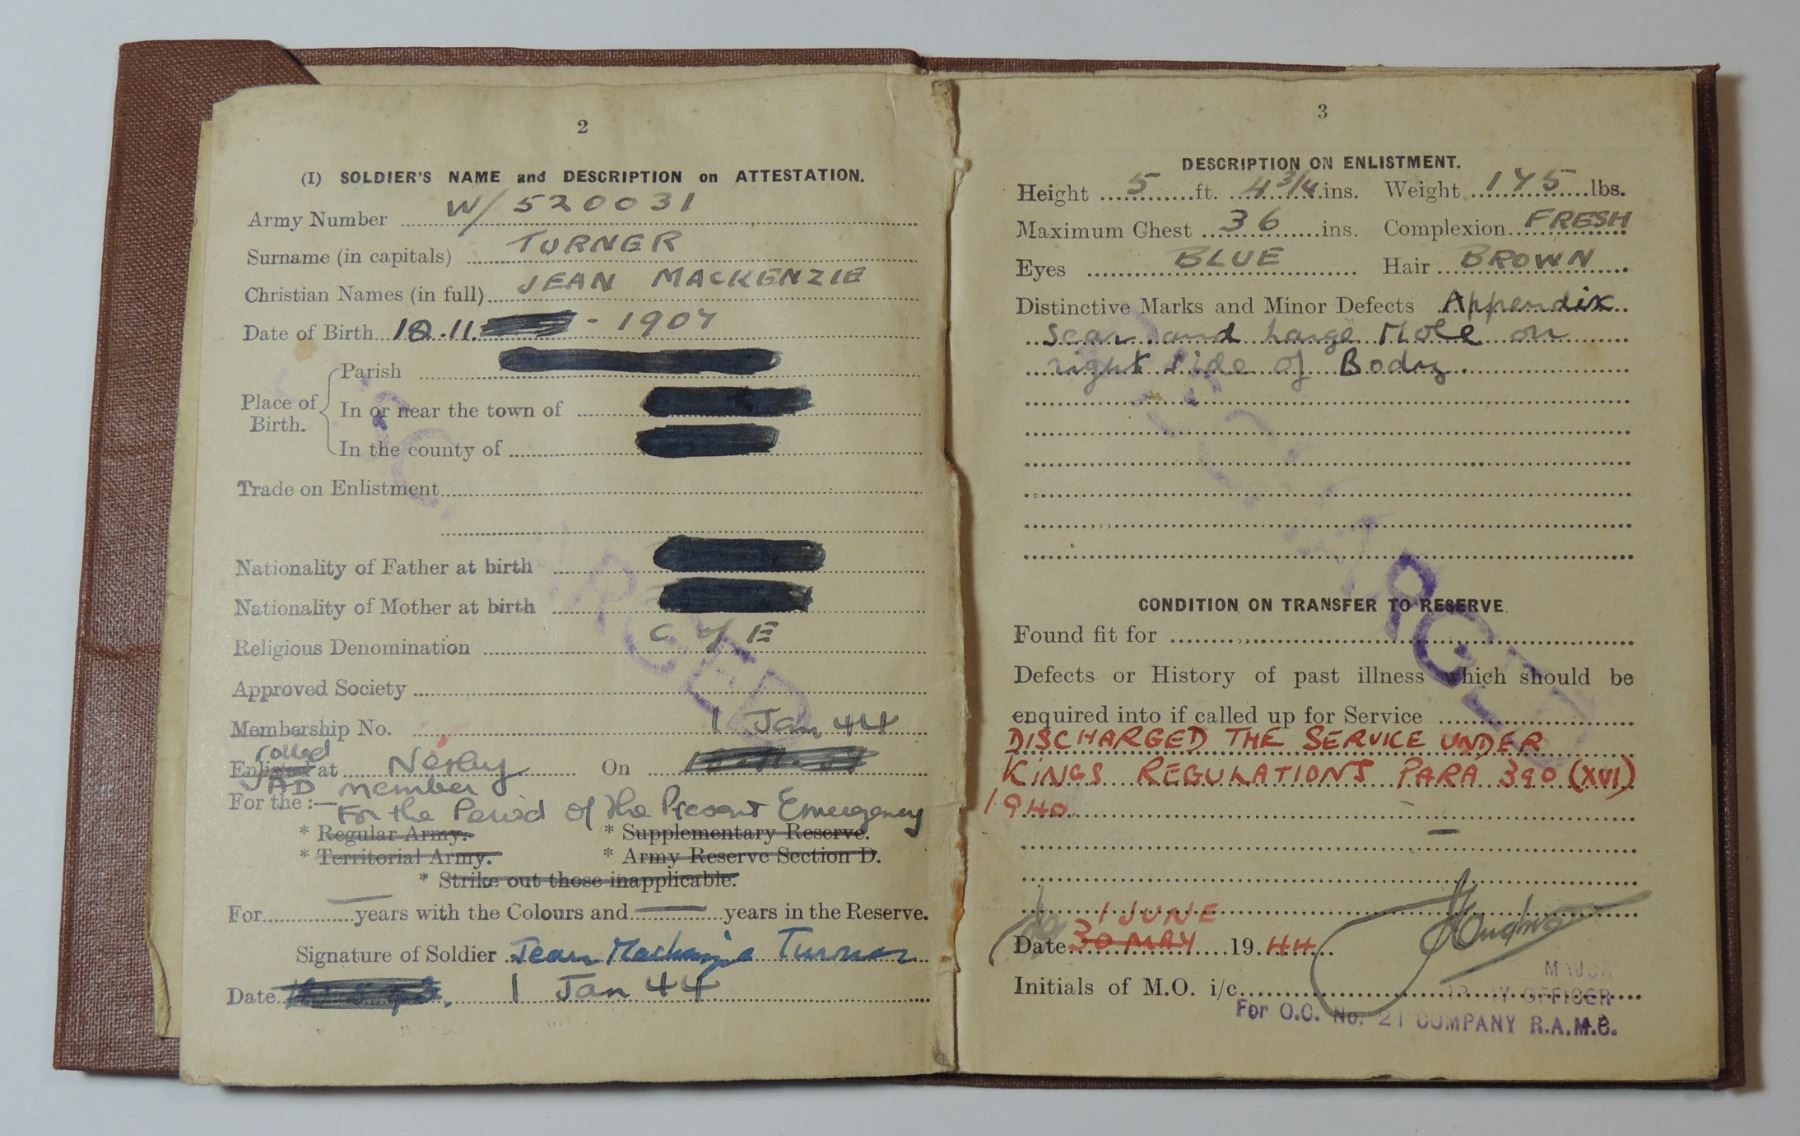 2
(I) SOLDIER'S NAME and DESCRIPTION on ATTESTATION.
Army Number W/520031
Surname (in capitals) TURNER
Christian Names (in full) JEAN MACKENZIE
Date of Birth 18.11. - 1907
Place of Birth.
Parish
In or near the town of
In the county of
Trade on Enlistment
Nationality of Father at birth
Nationality of Mother at birth
Religious Denomination C of E
Approved Society
Membership No.
1 Jan 44
rolled
Enlisted at On
VAD member
For the :— For the Period of the Present Emergency
* Regular Army. * Supplementary Reserve.
* Territorial Army. * Army Reserve Section D.
* Strike out those inapplicable.
For years with the Colours and years in the Reserve.
Signature of Soldier Jean Mackenzie Turner
Date 1 Jan 44
DISCHARGED
3
DESCRIPTION ON ENLISTMENT.
Height 5 ft. 4 3/4 ins. Weight 145 lbs.
Maximum Chest 36 ins. Complexion FRESH
Eyes BLUE Hair BROWN
Distinctive Marks and Minor Defects Appendix
scar and large Mole on
right side of Body.
CONDITION ON TRANSFER TO RESERVE.
Found fit for
Defects or History of past illness which should be
enquired into if called up for Service
DISCHARGED THE SERVICE UNDER
KINGS REGULATIONS PARA 390 (XVI)
1940
1 JUNE
Date 30 MAY 1944
Initials of M.O. i/c
MAJOR
OFFICER
For O.C. No. 21 COMPANY R.A.M.C.
DISCHARGED